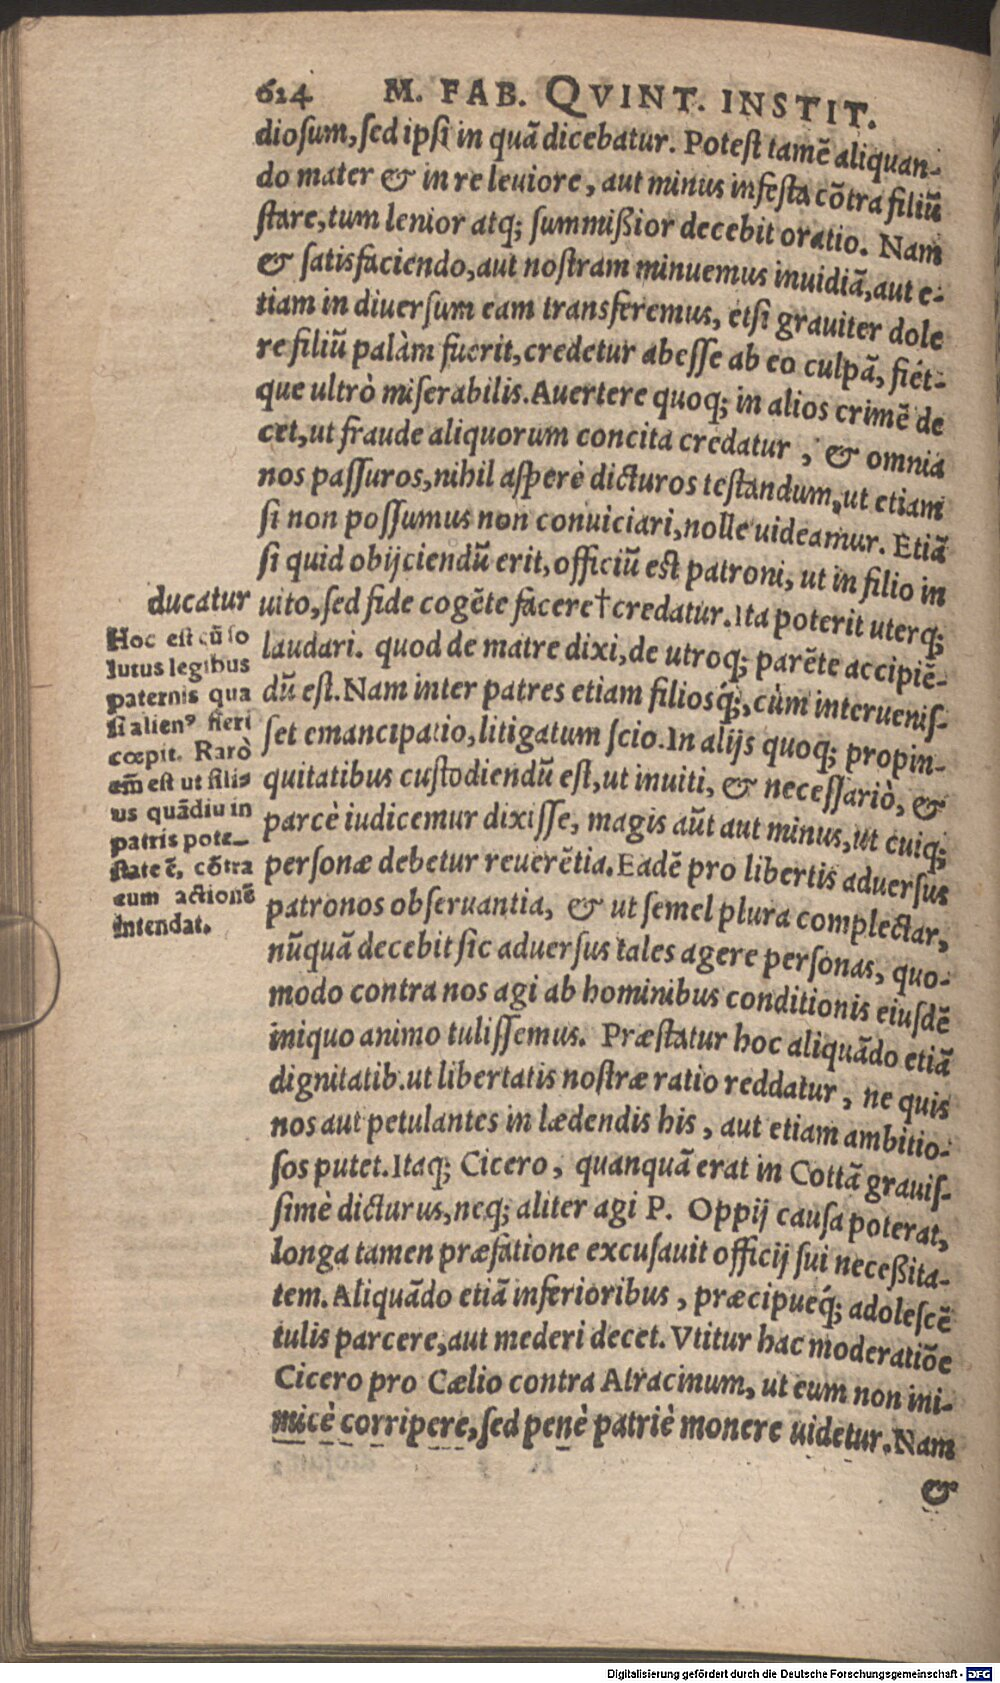 624 M. FAB. QVINT. INSTIT.
dioſum, ſed ipſi in quā dicebatur. Poteſt tamē aliquan-
do mater & in re leuiore, aut minus infeſta cōtra filiū
ſtare, tum lenior atq; ſummißior decebit oratio. Nam
& ſatisfaciendo, aut noſtram minuemus inuidiā, aut e-
tiam in diuerſum eam transferemus, etſi grauiter dole
re filiū palàm fuerit, credetur abeſſe ab eo culpā, fiét-
que ultrò miſerabilis. Auertere quoq; in alios crimē de
cet, ut fraude aliquorum concita credatur, & omnia
nos paſſuros, nihil aſperè dicturos teſtandum, ut etiam
ſi non poſſumus non conuiciari, nolle uideamur. Etiā
ſi quid obijciendū erit, officiū est patroni, ut in filio in
uito, ſed fide cogēte facere† credatur. Ita poterit uterq;
laudari. quod de matre dixi, de utroq; parēte accipiē-
dū eſt. Nam inter patres etiam filiosq́;, cùm interueniſ-
ſet emancipatio, litigatum ſcio. In alijs quoq; propin-
quitatibus cuſtodiendū eſt, ut inuiti, & neceſſariò, &
parcè iudicemur dixiſſe, magis aūt aut minus, ut cuiq;
perſonæ debetur reuerētia. Eadē pro libertis aduerſus
patronos obſeruantia, & ut ſemel plura complectar,
nūquā decebit ſic aduerſus tales agere perſonas, quo-
modo contra nos agi ab hominibus conditionis eiuſdē
iniquo animo tuliſſemus. Præſtatur hoc aliquādo etiā
dignitatib. ut libertatis noſtræ ratio reddatur, ne quis
nos aut petulantes in lædendis his, aut etiam ambitio-
ſos putet. Itaq; Cicero, quanquā erat in Cottā grauiſ-
ſimè dicturus, neq; aliter agi P. Oppij cauſa poterat,
longa tamen præfatione excuſauit officij ſui neceßita-
tem. Aliquādo etiā inferioribus, præcipueq́; adoleſcē
tulis parcere, aut mederi decet. Vtitur hac moderatiōe
Cicero pro Cælio contra Atracinum, ut eum non ini-
micè corripere, ſed penè patriè monere uidetur. Nam
&
ducatur
Hoc est cū ſo
lutus legibus
paternis qua
ſi alienꝰ fieri
cœpit. Rarò
em̄ est ut fili-
us quādiu in
patris pote-
ſtate ē, cōtra
eum actionē
intendat.
Digitalisierung gefördert durch die Deutsche Forschungsgemeinschaft - DFG